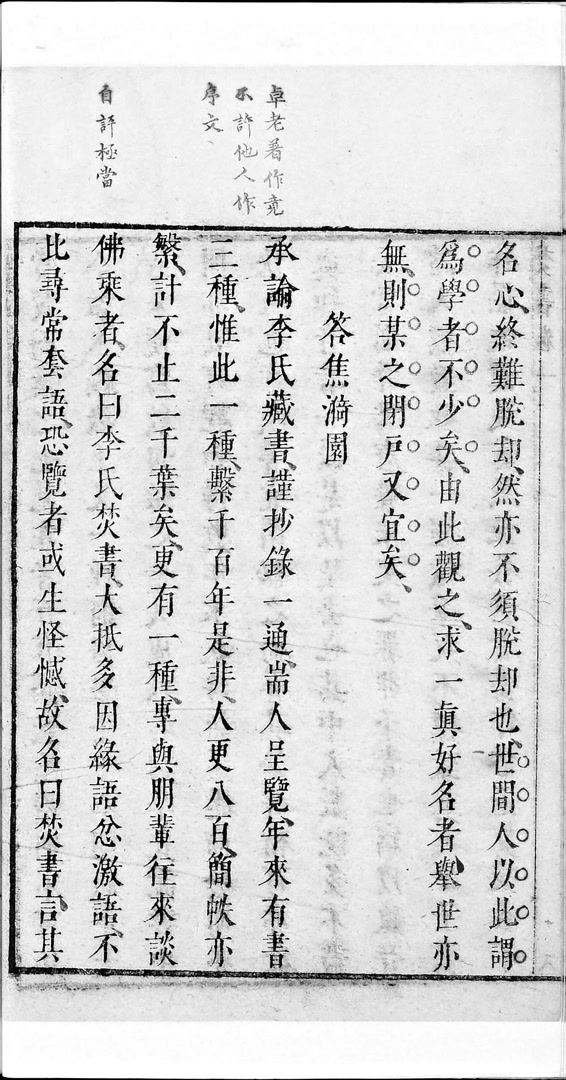 卓老著作竟
不許他人作
序文
自評極當
名心終難脫却、然亦不須脫却也、世間人以此謂
爲學者不少矣、由此觀之、求一眞好名者、舉世亦
無、則某之閉戶又宜矣、
答焦漪園
承諭李氏藏書、謹抄錄一通、耑人呈覽、年來有書
三種、惟此一種、繫千百年是非、人更八百、簡帙亦
繁、計不止二千葉矣、更有一種、專與朋輩往來談
佛乘者、名曰李氏焚書、大抵多因緣語忿激語、不
比尋常套語、恐覽者或生怪憾、故名曰焚書、言其